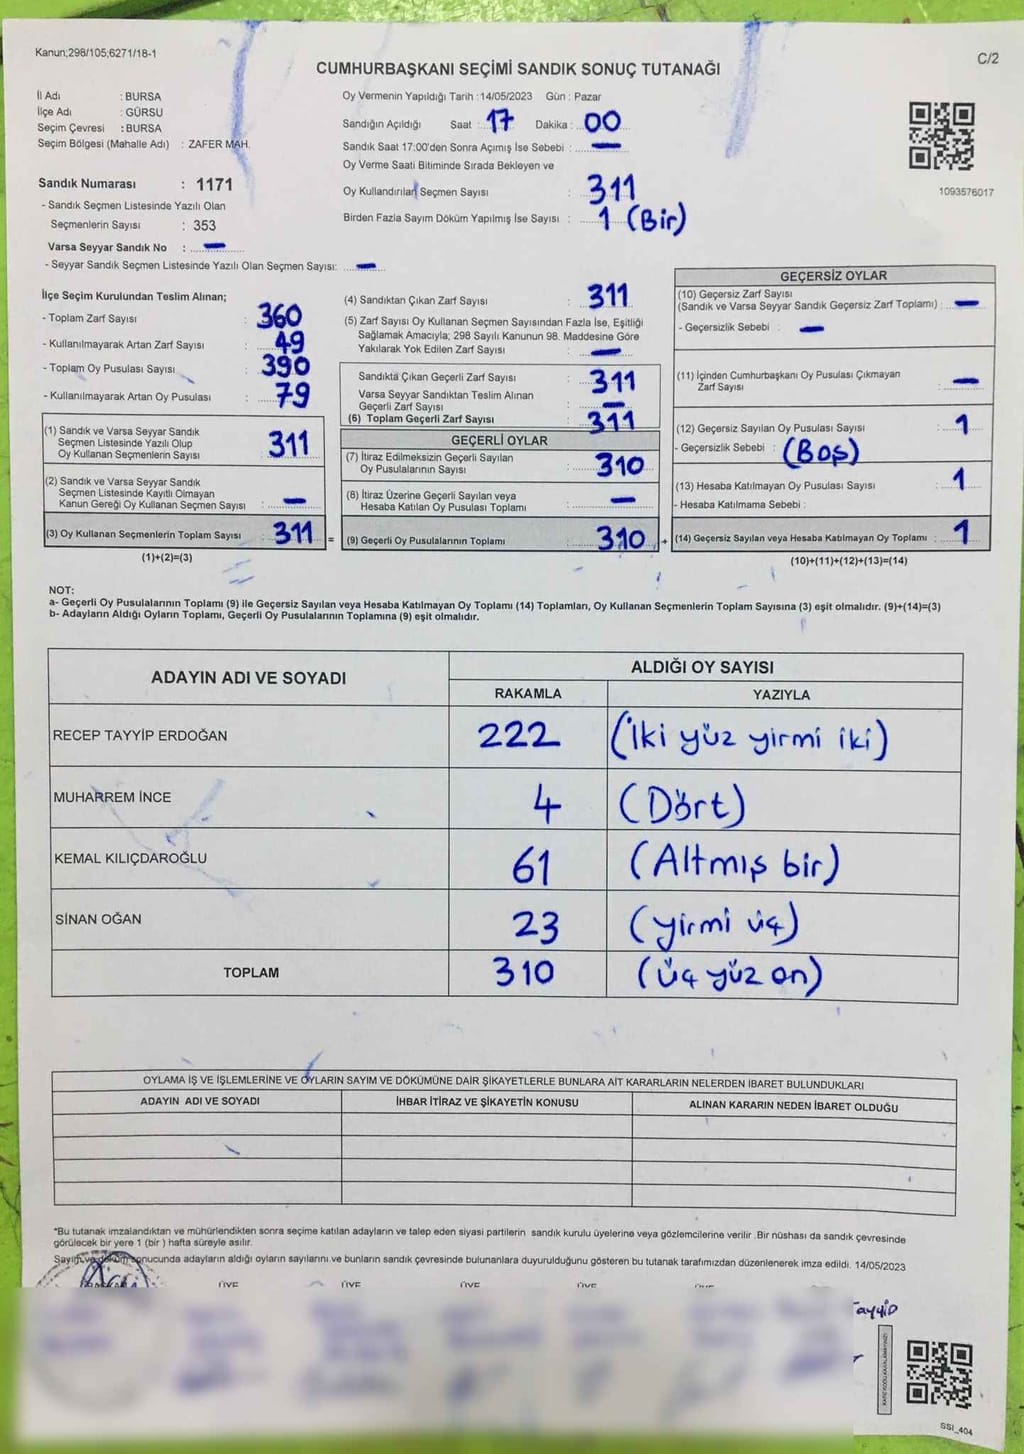 Kanun;298/105;6271/18-1
C/2
CUMHURBAŞKANI SEÇİMİ SANDIK SONUÇ TUTANAĞI
İl Adı : BURSA
İlçe Adı : GÜRSU
Seçim Çevresi : BURSA
Seçim Bölgesi (Mahalle Adı) : ZAFER MAH.
Sandık Numarası : 1171
- Sandık Seçmen Listesinde Yazılı Olan
Seçmenlerin Sayısı : 353
Varsa Seyyar Sandık No : —
- Seyyar Sandık Seçmen Listesinde Yazılı Olan Seçmen Sayısı: —
Oy Vermenin Yapıldığı Tarih : 14/05/2023 Gün : Pazar
Sandığın Açıldığı Saat : 17 Dakika : 00
Sandık Saat 17:00'den Sonra Açımış İse Sebebi : —
Oy Verme Saati Bitiminde Sırada Bekleyen ve
Oy Kullandırılan Seçmen Sayısı : 311
Birden Fazla Sayım Döküm Yapılmış İse Sayısı : 1 (Bir)
1093576017
İlçe Seçim Kurulundan Teslim Alınan;
- Toplam Zarf Sayısı : 360
- Kullanılmayarak Artan Zarf Sayısı : 49
- Toplam Oy Pusulası Sayısı : 390
- Kullanılmayarak Artan Oy Pusulası : 79
(1) Sandık ve Varsa Seyyar Sandık
Seçmen Listesinde Yazılı Olup
Oy Kullanan Seçmenlerin Sayısı 311
(2) Sandık ve Varsa Seyyar Sandık
Seçmen Listesinde Kayıtlı Olmayan
Kanun Gereği Oy Kullanan Seçmen Sayısı : —
(3) Oy Kullanan Seçmenlerin Toplam Sayısı : 311 =
(1)+(2)=(3)
(4) Sandıktan Çıkan Zarf Sayısı : 311
(5) Zarf Sayısı Oy Kullanan Seçmen Sayısından Fazla İse, Eşitliği
Sağlamak Amacıyla; 298 Sayılı Kanunun 98. Maddesine Göre
Yakılarak Yok Edilen Zarf Sayısı : —
Sandıkta Çıkan Geçerli Zarf Sayısı : 311
Varsa Seyyar Sandıktan Teslim Alınan
Geçerli Zarf Sayısı : —
(6) Toplam Geçerli Zarf Sayısı : 311
GEÇERLİ OYLAR
(7) İtiraz Edilmeksizin Geçerli Sayılan
Oy Pusulalarının Sayısı : 310
(8) İtiraz Üzerine Geçerli Sayılan veya
Hesaba Katılan Oy Pusulası Toplamı : —
(9) Geçerli Oy Pusulalarının Toplamı : 310 +
GEÇERSİZ OYLAR
(10) Geçersiz Zarf Sayısı
(Sandık ve Varsa Seyyar Sandık Geçersiz Zarf Toplamı) : —
- Geçersizlik Sebebi : —
(11) İçinden Cumhurbaşkanı Oy Pusulası Çıkmayan
Zarf Sayısı : —
(12) Geçersiz Sayılan Oy Pusulası Sayısı : 1
- Geçersizlik Sebebi : (Boş)
(13) Hesaba Katılmayan Oy Pusulası Sayısı : 1
- Hesaba Katılmama Sebebi :
(14) Geçersiz Sayılan veya Hesaba Katılmayan Oy Toplamı : 1
(10)+(11)+(12)+(13)=(14)
NOT:
a- Geçerli Oy Pusulalarının Toplamı (9) ile Geçersiz Sayılan veya Hesaba Katılmayan Oy Toplamı (14) Toplamları, Oy Kullanan Seçmenlerin Toplam Sayısına (3) eşit olmalıdır. (9)+(14)=(3)
b- Adayların Aldığı Oyların Toplamı, Geçerli Oy Pusulalarının Toplamına (9) eşit olmalıdır.
ADAYIN ADI VE SOYADI
ALDIĞI OY SAYISI
RAKAMLA YAZIYLA
RECEP TAYYİP ERDOĞAN 222 (İki yüz yirmi iki)
MUHARREM İNCE 4 (Dört)
KEMAL KILIÇDAROĞLU 61 (Altmış bir)
SİNAN OĞAN 23 (yirmi üç)
TOPLAM 310 (üç yüz on)
OYLAMA İŞ VE İŞLEMLERİNE VE OYLARIN SAYIM VE DÖKÜMÜNE DAİR ŞİKAYETLERLE BUNLARA AİT KARARLARIN NELERDEN İBARET BULUNDUKLARI
ADAYIN ADI VE SOYADI İHBAR İTİRAZ VE ŞİKAYETİN KONUSU ALINAN KARARIN NEDEN İBARET OLDUĞU
*Bu tutanak imzalandıktan ve mühürlendikten sonra seçime katılan adayların ve talep eden siyasi partilerin sandık kurulu üyelerine veya gözlemcilerine verilir .Bir nüshası da sandık çevresinde
görülecek bir yere 1 (bir ) hafta süreyle asılır.
Sayım ve döküm sonucunda adayların aldığı oyların sayılarını ve bunların sandık çevresinde bulunanlara duyurulduğunu gösteren bu tutanak tarafımızdan düzenlenerek imza edildi. 14/05/2023
ÜYE ÜYE ÜYE ÜYE
Tayyip
SSI_404